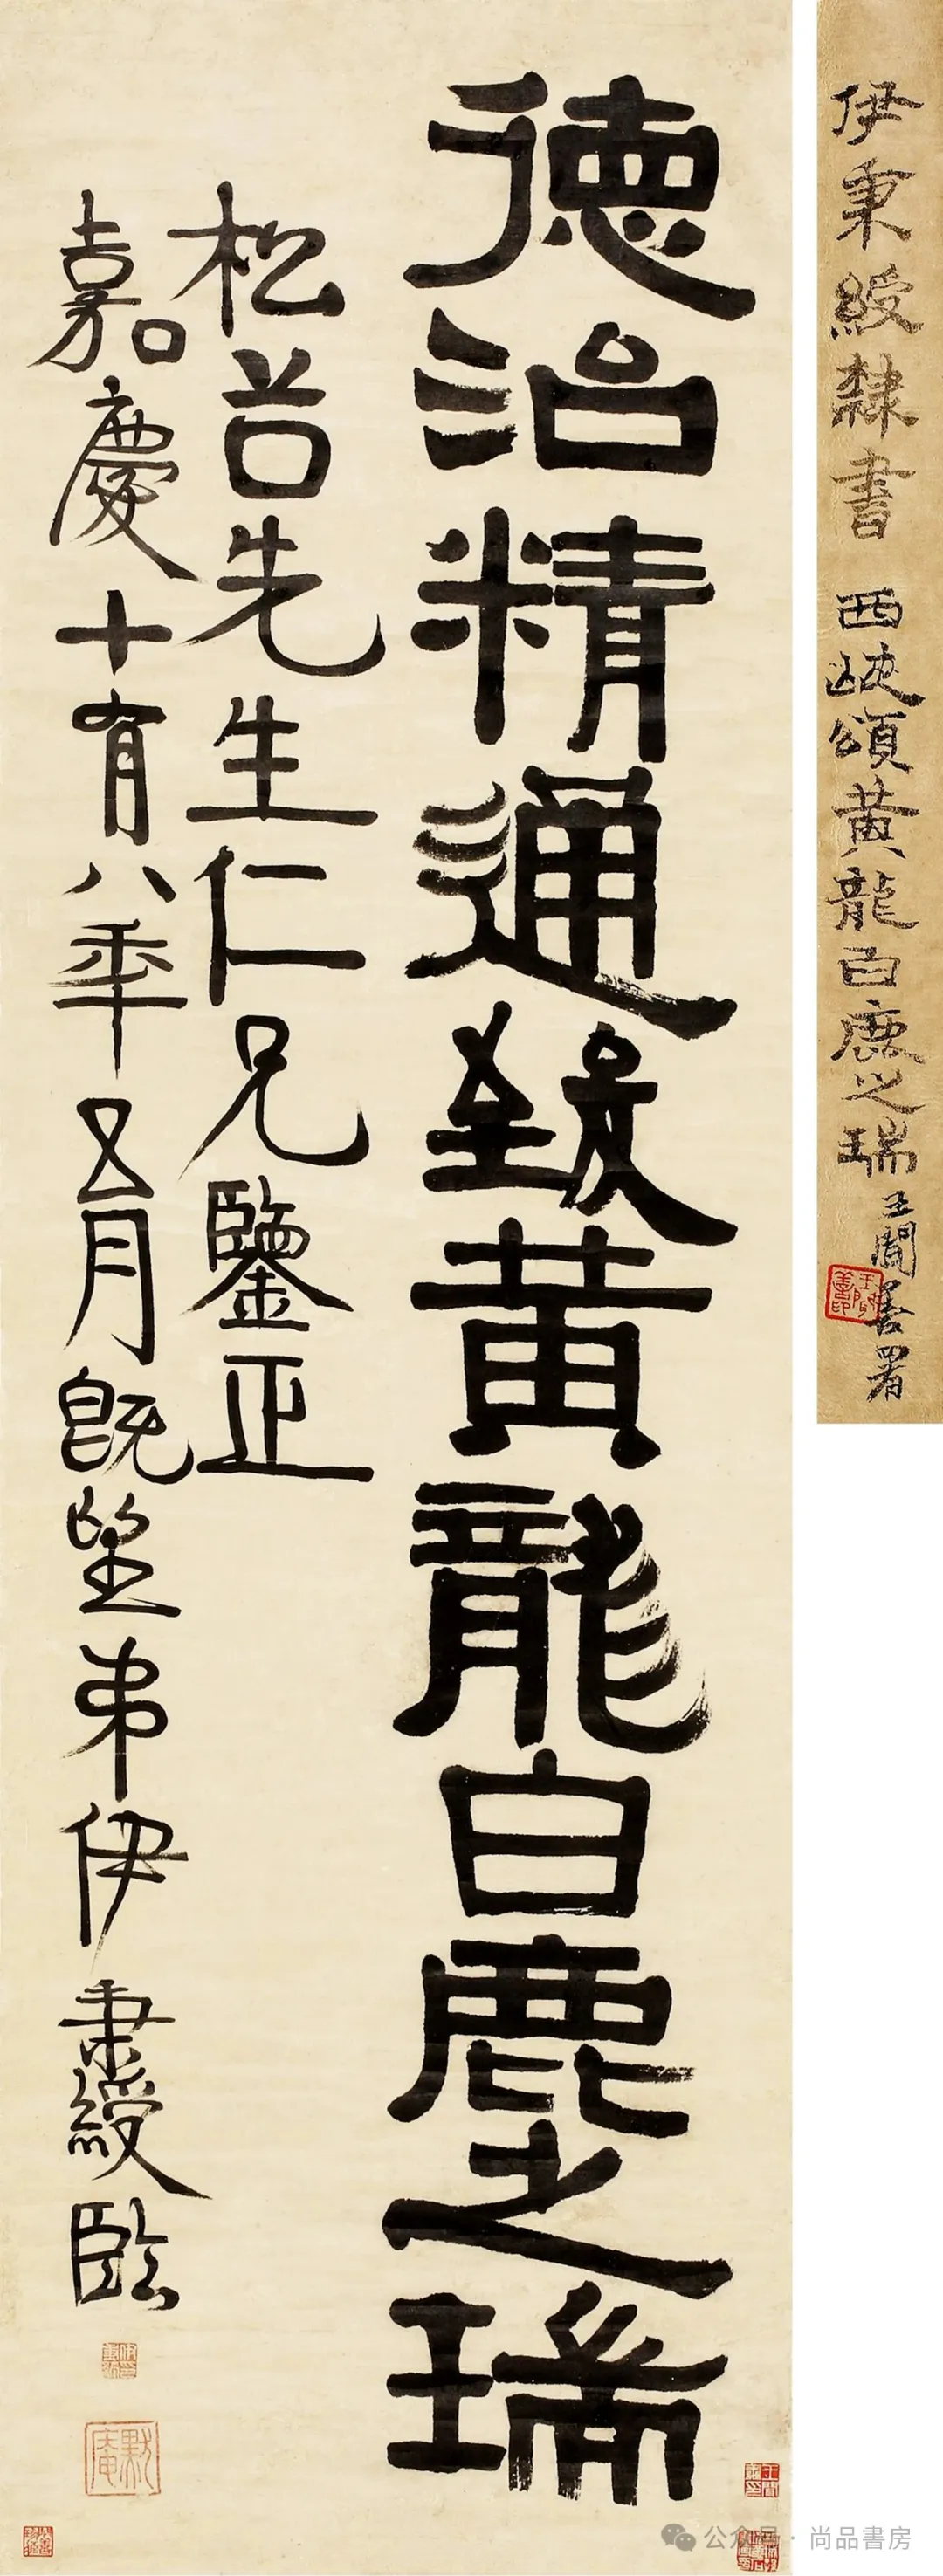 德治精通致黄龍白鹿之瑞
松苔先生仁兄鑒正
嘉慶十有八年五月既望弟伊秉綬臨
默庵
伊秉綬隸書 西峽頌黄龍白鹿之瑞 王闓善署
公众号 · 尚品書房